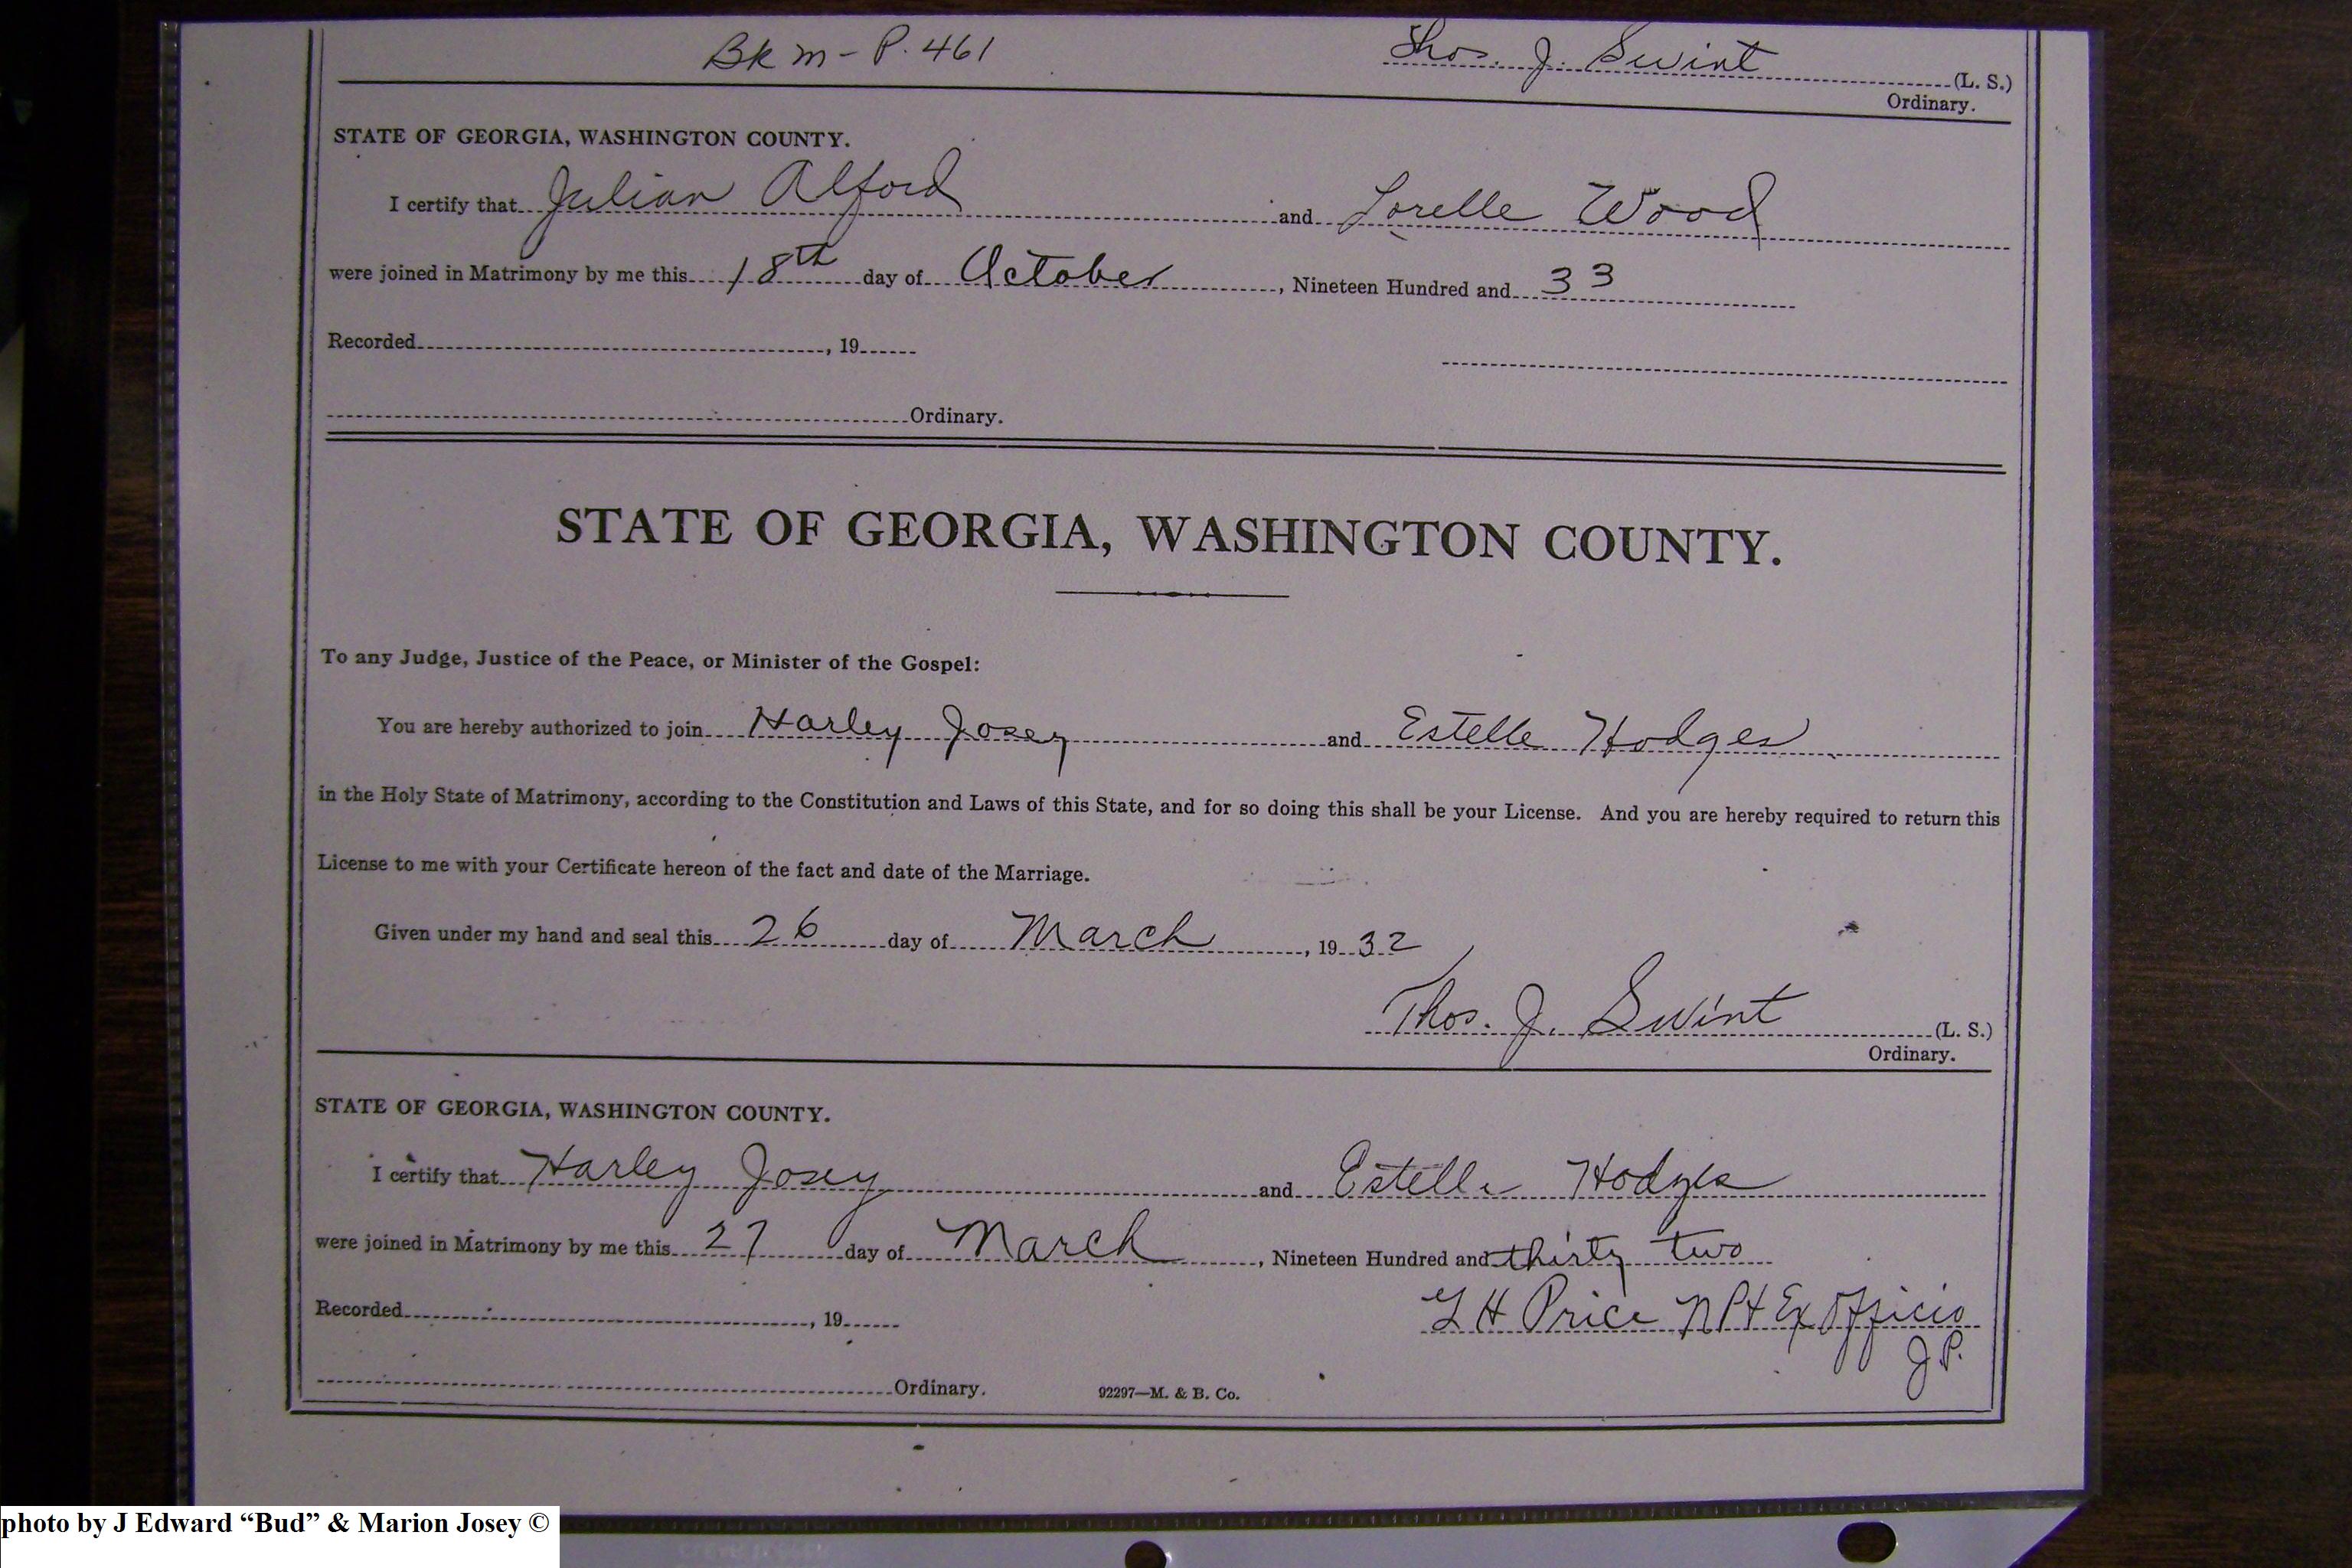 Bk M - P. 461
Thos. J. Swint (L. S.)
Ordinary.
STATE OF GEORGIA, WASHINGTON COUNTY.
I certify that Julian Alford and Lorelle Wood
were joined in Matrimony by me this 18th day of October, Nineteen Hundred and 33
Recorded , 19
Ordinary.
STATE OF GEORGIA, WASHINGTON COUNTY.
To any Judge, Justice of the Peace, or Minister of the Gospel:
You are hereby authorized to join Harley Josey and Estelle Hodges
in the Holy State of Matrimony, according to the Constitution and Laws of this State, and for so doing this shall be your License. And you are hereby required to return this
License to me with your Certificate hereon of the fact and date of the Marriage.
Given under my hand and seal this 26 day of March, 1932
Thos. J. Swint (L. S.)
Ordinary.
STATE OF GEORGIA, WASHINGTON COUNTY.
I certify that Harley Josey and Estelle Hodges
were joined in Matrimony by me this 27 day of March, Nineteen Hundred and thirty two
Recorded , 19
H Price NP & Ex Officio
J.P.
Ordinary. 92297—M. & B. Co.
photo by J Edward “Bud” & Marion Josey ©